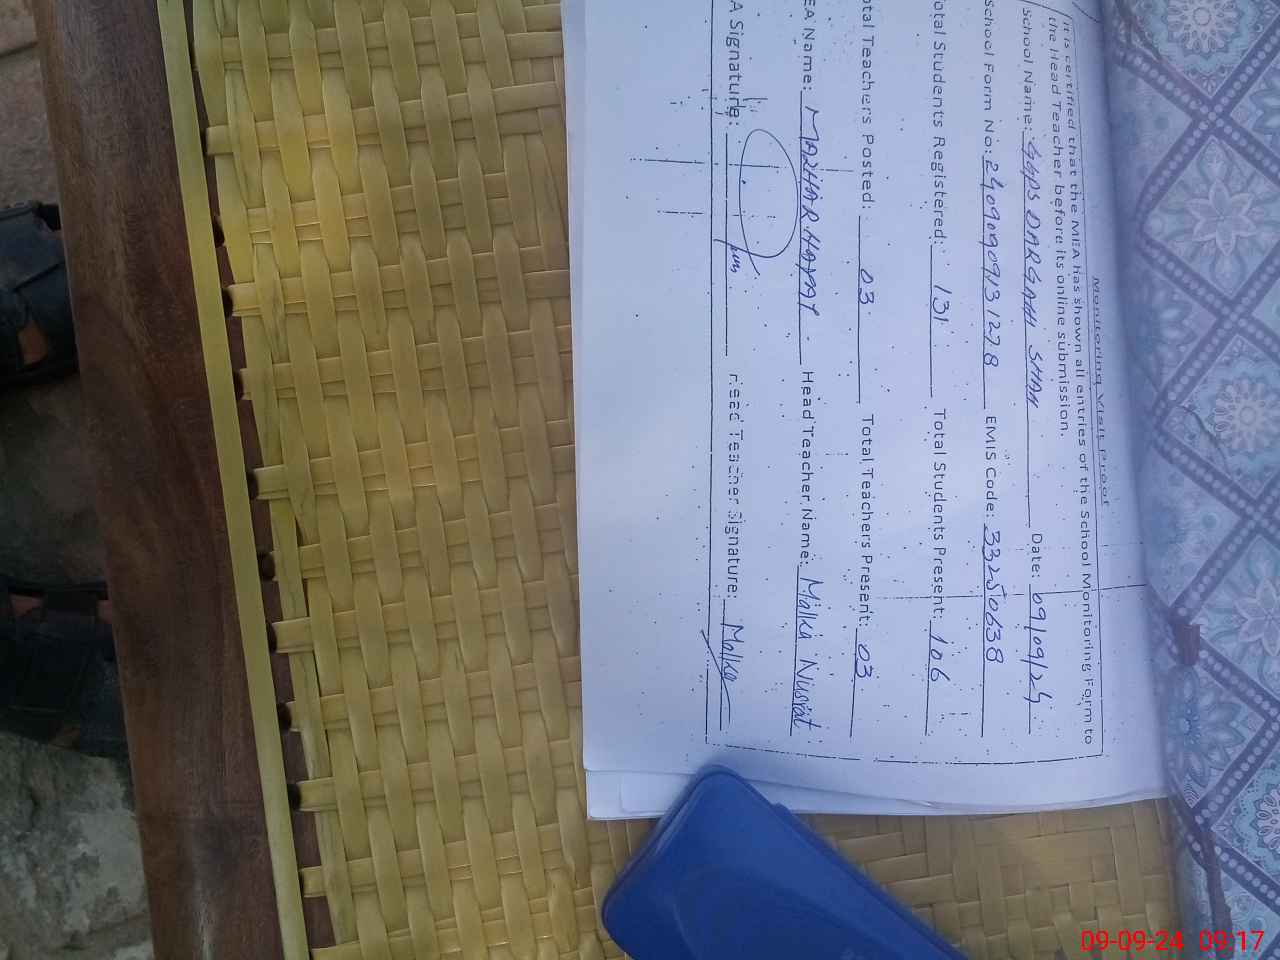 Monitoring Visit Proof
It is certified that the MEA has shown all entries of the School Monitoring Form to
the Head Teacher before its online submission.
School Name: GGPS DARGAHI SHAH Date: 09/09/24
School Form No: 2409090913 1278 EMIS Code: 33250638
otal Students Registered: 131 Total Students Present: 106
otal Teachers Posted: 03 Total Teachers Present: 03
EA Name: MAZHAR HAYAT Head Teacher Name: Malka Nusrat
A Signature: Head Teacher Signature: Malka
09-09-24 09:17